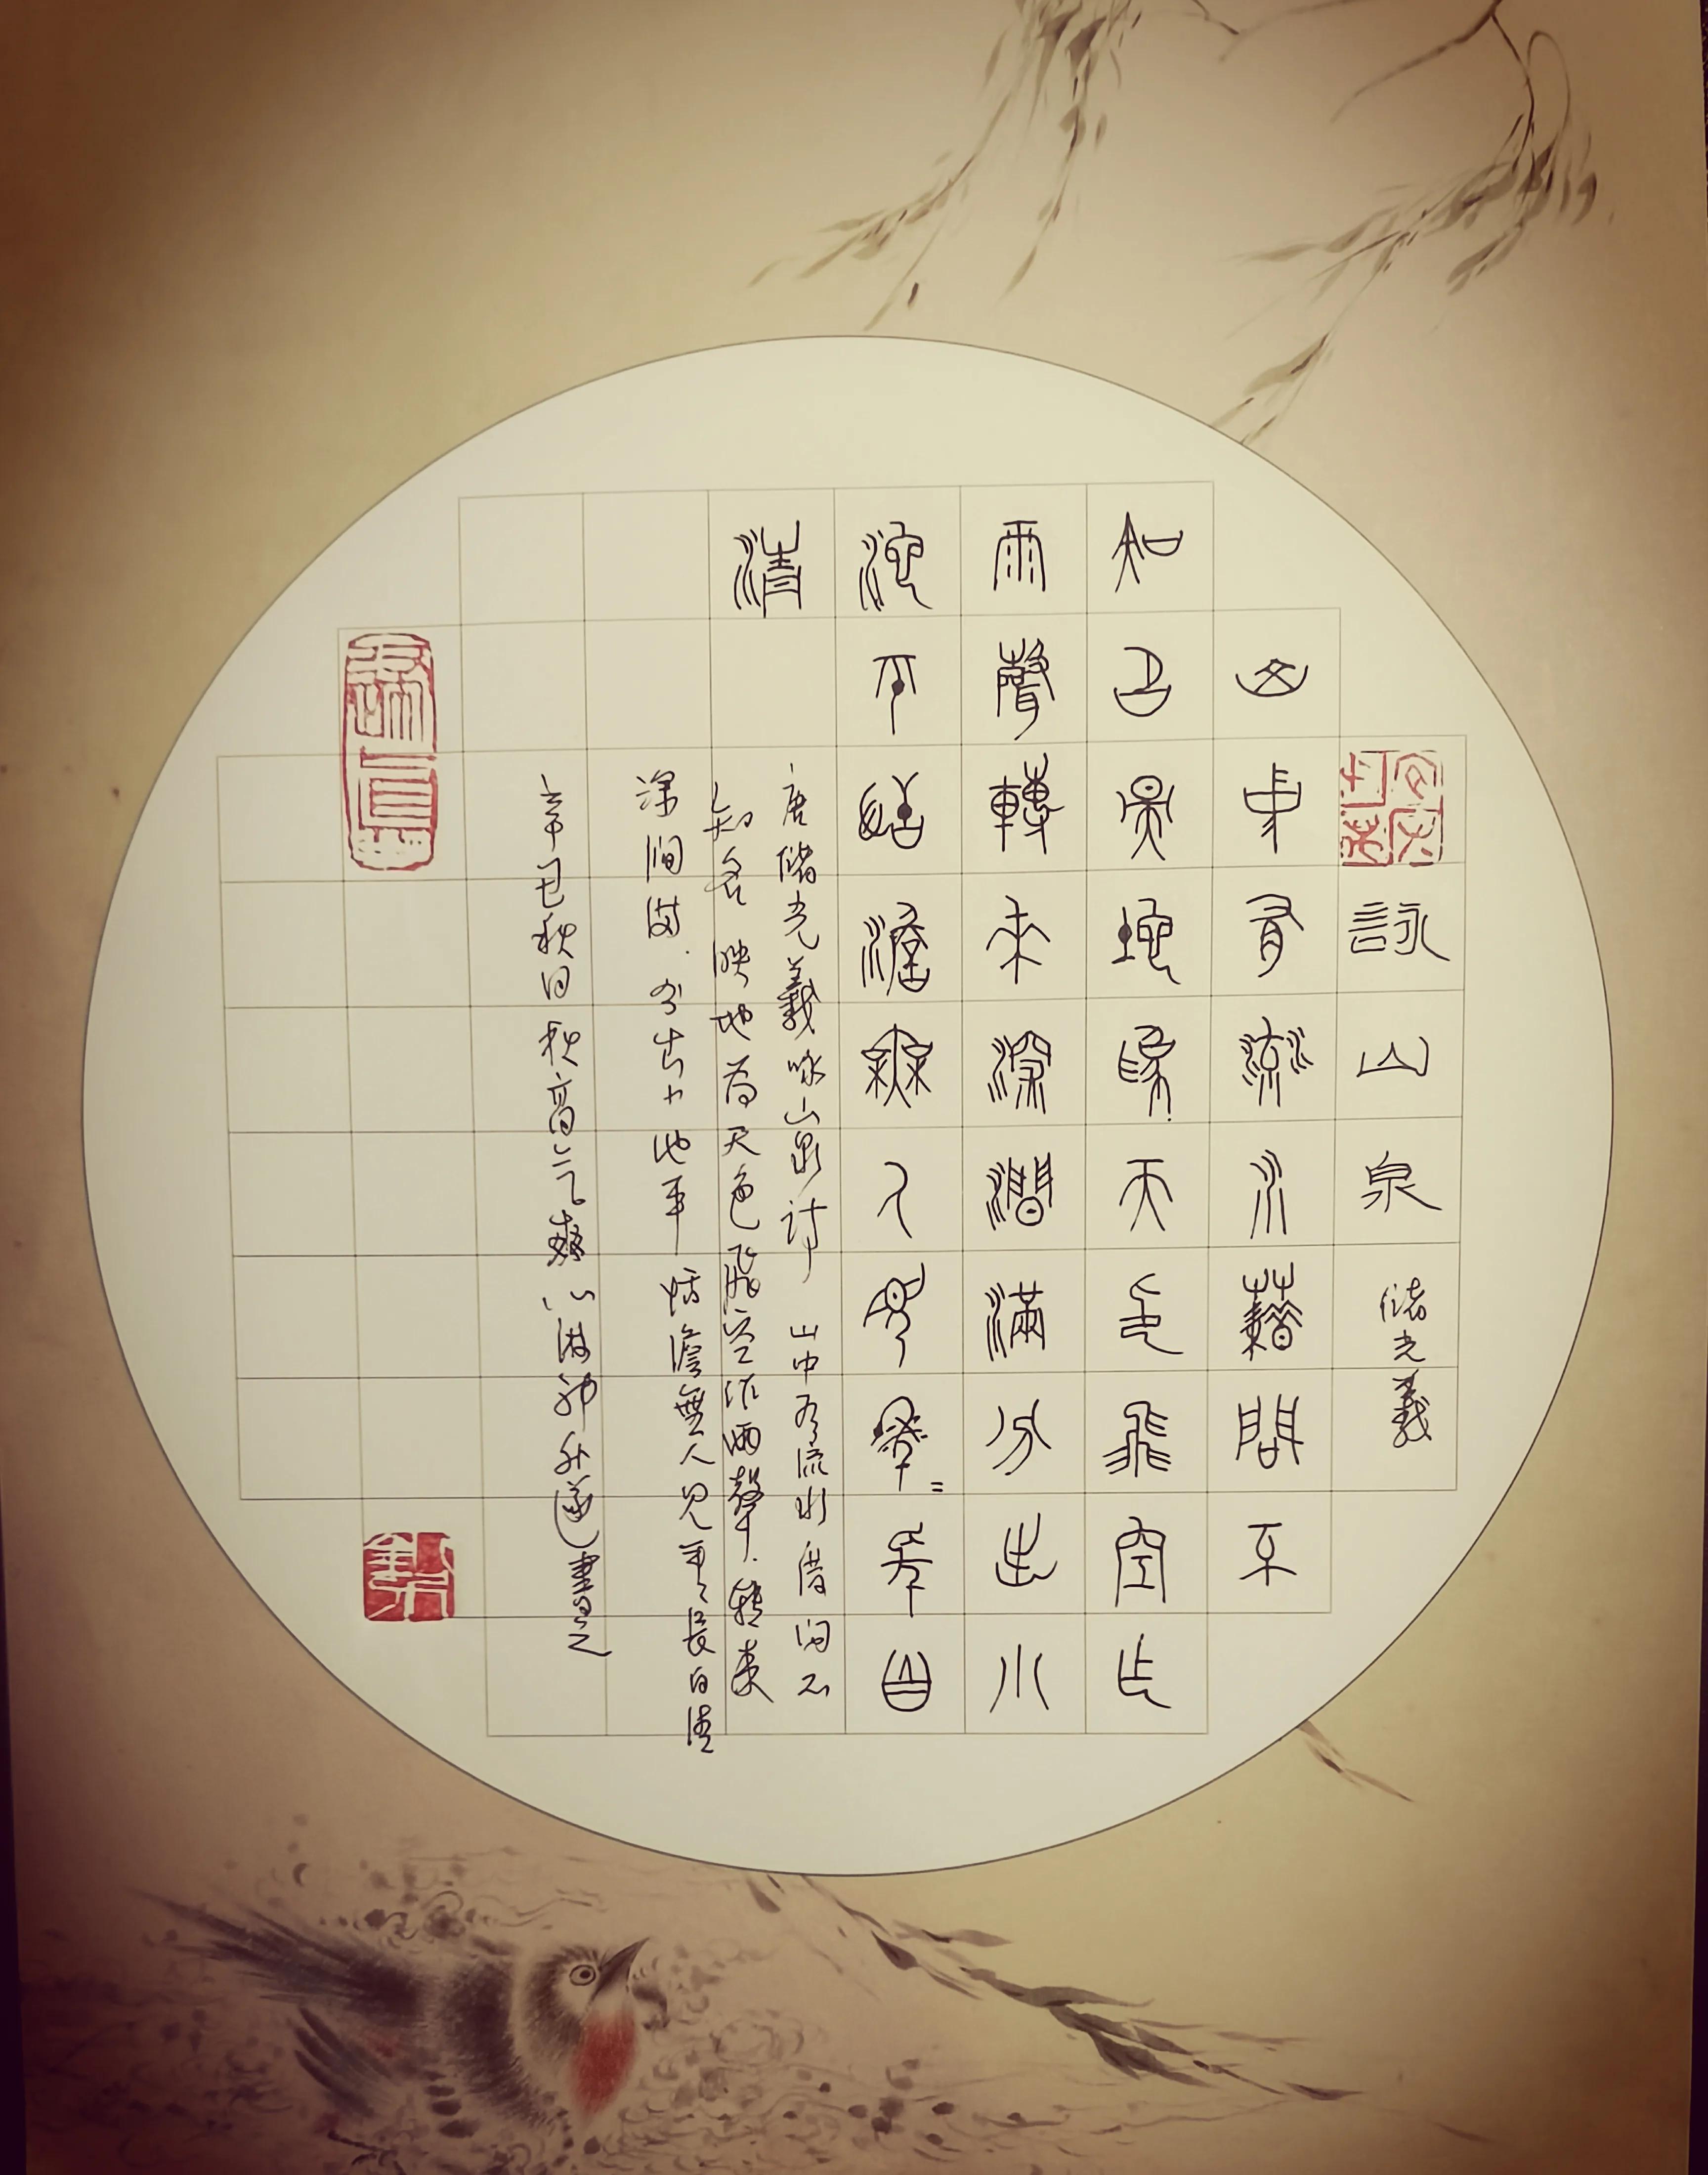 詠山泉 儲光羲
山中有流水藉問不
知名映地為天色飛空作
雨聲轉來深澗滿分出小
池平恬澹無人見年=長自
清
唐儲光羲咏山泉诗 山中有流水借问不
知名映地为天色飛空作雨聲.转来
深涧满.分出小池平恬澹無人见年々長自清
辛丑秋日秋高气爽 神 遂書之